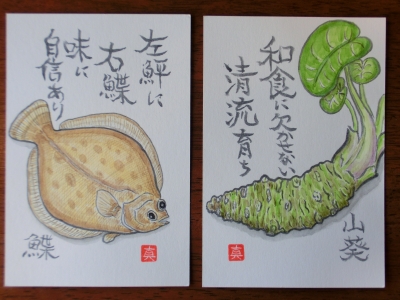 左鮃に
右鰈
味に
自信あり
鰈
真
和食に欠かせない
清流育ち
山葵
真